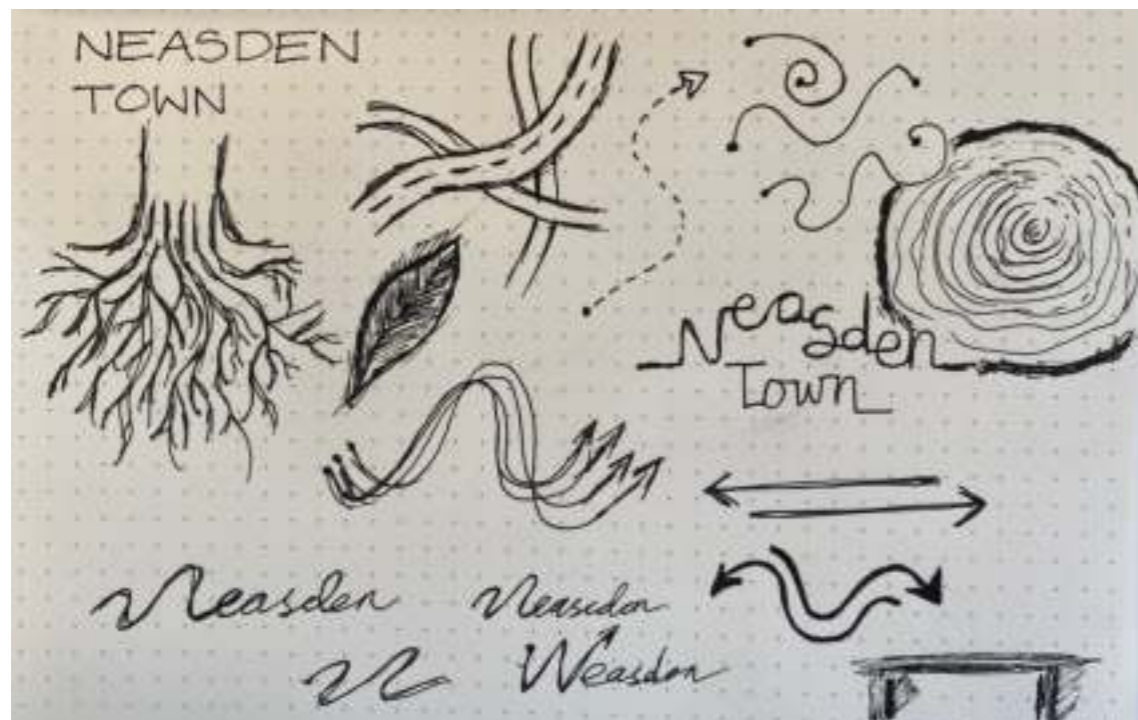 NEASDEN
TOWN
Neasden
Town
Neasden
Neasdon
N
Weasdon